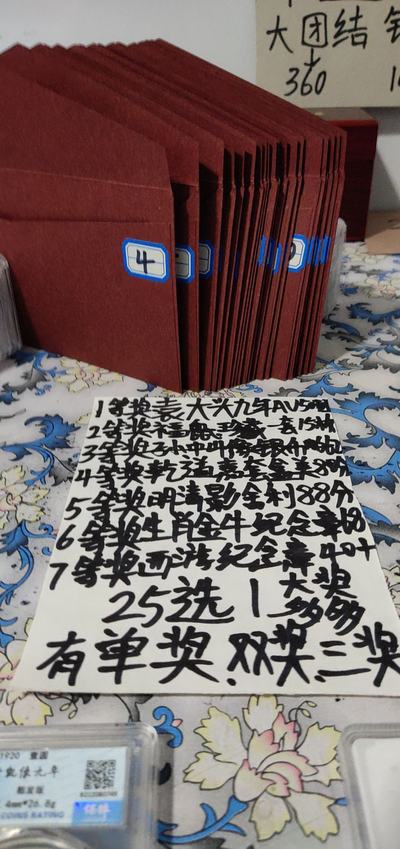 大团结
360
4
1等奖袁大头九年AU5
2等奖福鼠珍藏一套15
3等奖孙中山
4等奖乾通套金8
5等奖明清影金利88分
6等奖生肖金牛纪念章68
7等奖西游纪念章40+
25选1 大奖多多
有单奖.双奖.三奖
1920 壹圆
像九年
4mm*26.8g
COINS RATING